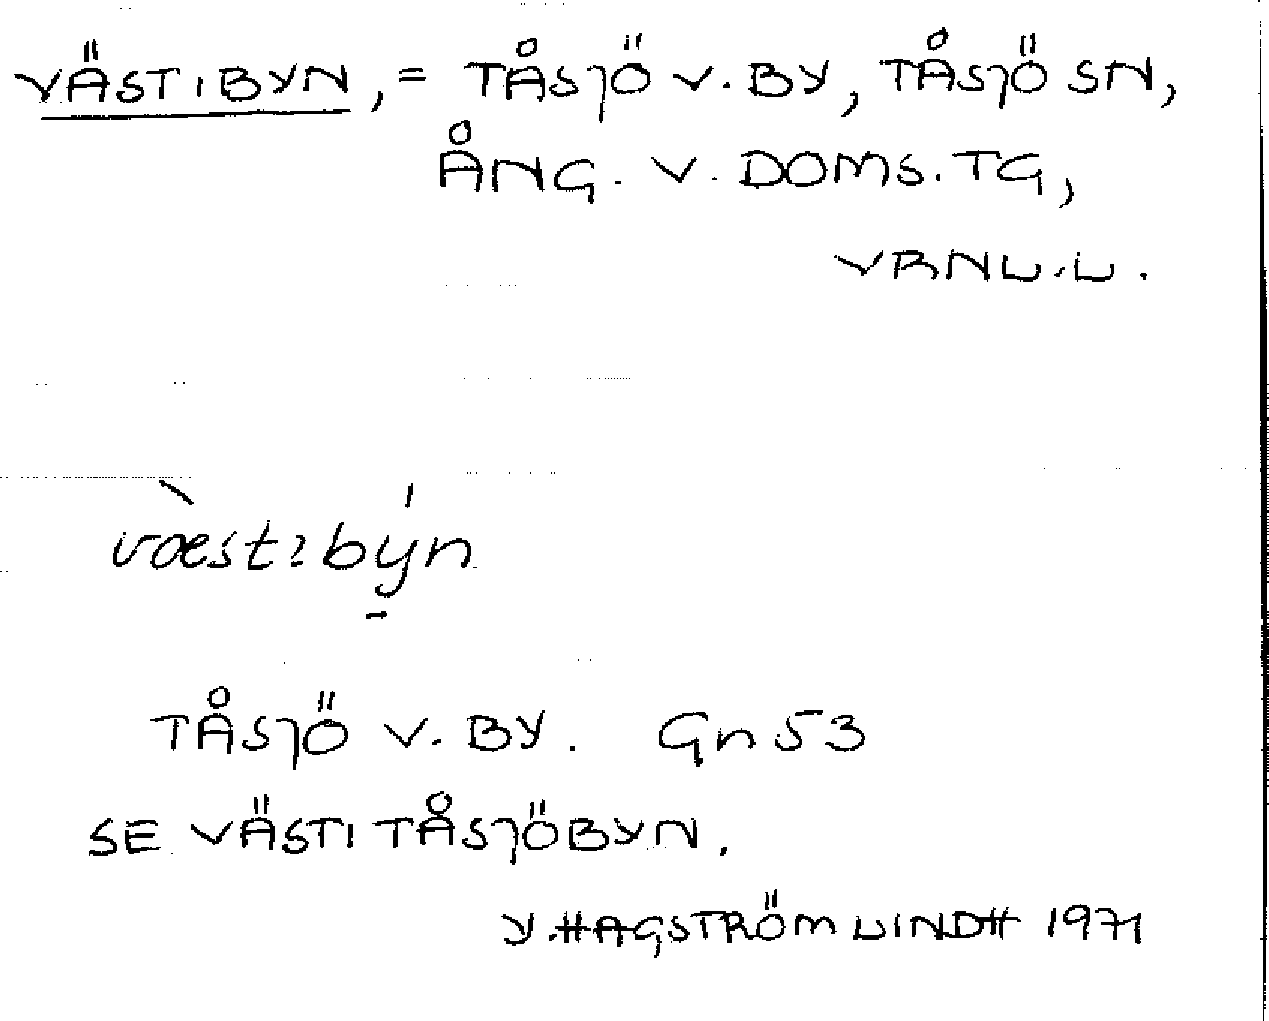 VÄSTIBYN, = TÅSJÖ V. BY, TÅSJÖ SN,
ÅNG. V. DOMS. TG,
VRNL.L.
væstıbyn
TÅSJÖ V. BY. Gn 53
SE VÄSTI TÅSJÖBYN.
Y. HAGSTRÖM LINDH 1971